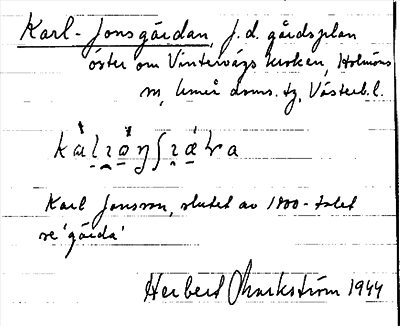 Karl-Jonsgårdan, f.d. gårdsplan
öster om Vintervägskroken, Holmöns
sn, Umeå doms. tg, Västerb.l.
Karl Jonsson, slutet av 1800-talet
se 'gårda'
Herbert Markström 1944